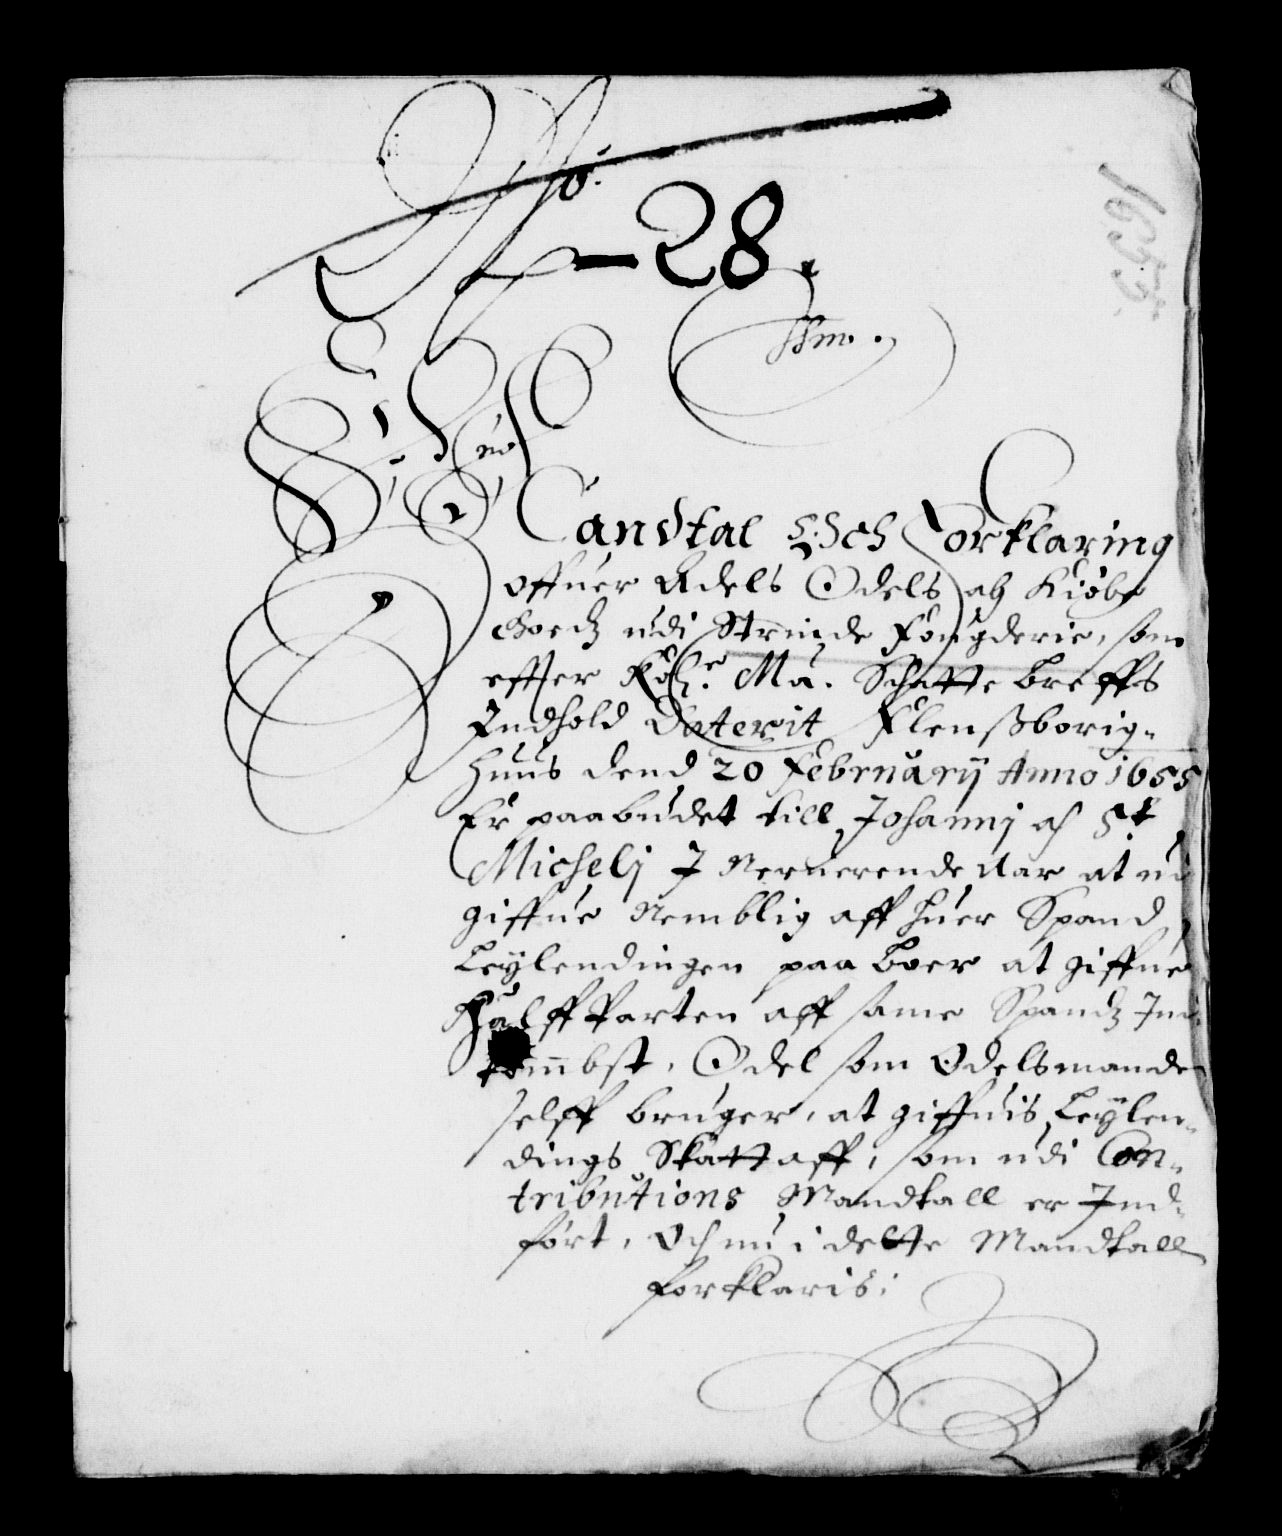 No.
28.
1655.
Mandtal Och Forklaring
offuer Adels Odels och Kiøbe
Goedz udi Strinde Fougderie, som
effter Kòn: Ma: Schatte breffs
Indhold Daterit Flensßborig-
huus dend 20 Februarij Anno 1655
Er paabudet till Johannj och St
Michelj I Nerverende Aar at ud
giffue Nemblig aff huer Spand
Leylendingen paa boer at giffue
Halff Parten aff same Spandz Ind
kombst, Odel som Odelsmanden
selff bruger, at giffuis Leylen-
dings Skatt aff, som udi Con-
tributions Mandtall er Ind-
fört, Och nu i dette Mandtall
forklaris: